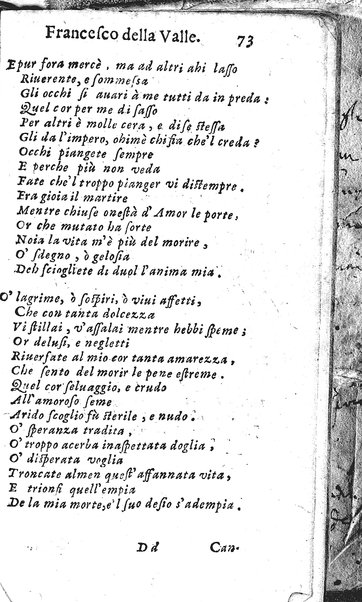 Francesco della Valle. 73
Epur fora mercè, ma ad altri ahi lasso
Riuerente, e sommessa
Gli occhi sì auari à me tutti da in preda:
Quel cor per me di sasso
Per altri è molle cera, e di se stessa
Gli da l'impero, ohimè chi fia che'l creda?
Occhi piangete sempre
E perche più non veda
Fate che'l troppo pianger vi distempre.
Era gioia il martire
Mentre chiuse onestà d'Amor le porte,
Or che mutato ha sorte
Noia la vita m'è più del morire,
O' sdegno, ò gelosia
Deh sciogliete di duol l'anima mia.
O' lagrime, ò sospiri, ò viui affetti,
Che con tanta dolcezza
Vi stillai, v'assalai mentre hebbi speme;
Or delusi, e negletti
Riuersate al mio cor tanta amarezza,
Che sento del morir le pene estreme.
Quel cor seluaggio, e crudo
All'amoroso seme
Arido scoglio fù sterile, e nudo.
O' speranza tradita,
O' troppo acerba inaspettata doglia,
O' disperata voglia
Troncate almen quest'affannata vita,
E trionfi quell'empia
De la mia morte, e'l suo desio s'adempia.
Dd Can-